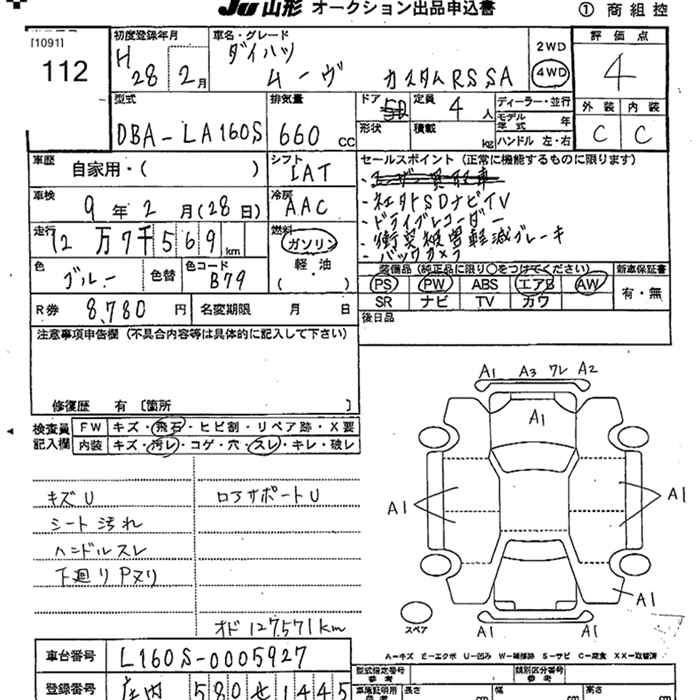 JU 山形 オークション出品申込書 ① 商 組 控
[1091]
112
初度登録年月 車名・グレード
H 28年 2月 ダイハツ ムーヴ カスタムRSSA
2WD
4WD
評価点
4
外装 内装
C C
型式 排気量
DBA-LA160S 660 cc
ドア 5D 定員 4人
形状 積載 kg
ディーラー・並行
モデル年式 年
ハンドル 左・右
車歴 自家用・( )
シフト IAT
車検 9年2月(28日)
冷房 AAC
走行 12万7千569km
燃料 ガソリン
軽・油
( )
色 ブルー 色替 色コード B79
R券 8,780円 名変期限 月 日
セールスポイント(正常に機能するものに限ります)
・社外SDナビTV
・ドライブレコーダー
・衝突被害軽減ブレーキ
・バックカメラ
装備品(純正品に限り○をつけてください) 新車保証書
PS PW ABS エアB AW 有・無
SR ナビ TV カワ
後日品
注意事項申告欄(不具合内容等は具体的に記入して下さい)
修復歴 有 [箇所 ]
検査員 FW キズ・飛石・ヒビ割・リペア跡・X要
記入欄 内装 キズ・汚レ・コゲ・穴・スレ・キレ・破レ
キズU ロアサポートU
シート汚れ
ハンドルスレ
下廻りPヌリ
オド127,571km
A1 A3 ワレ A2
A1
A1 A1
A1
A1 A1
スペア
A-キズ E-エクボ U-凹み W-補修跡 S-サビ C-腐食 XX-取替済
車台番号 L160S-0005927
型式指定番号 参考 類別区分番号 参考
登録番号 庄内 580 せ 1445
長さ cm 幅 cm 高さ cm